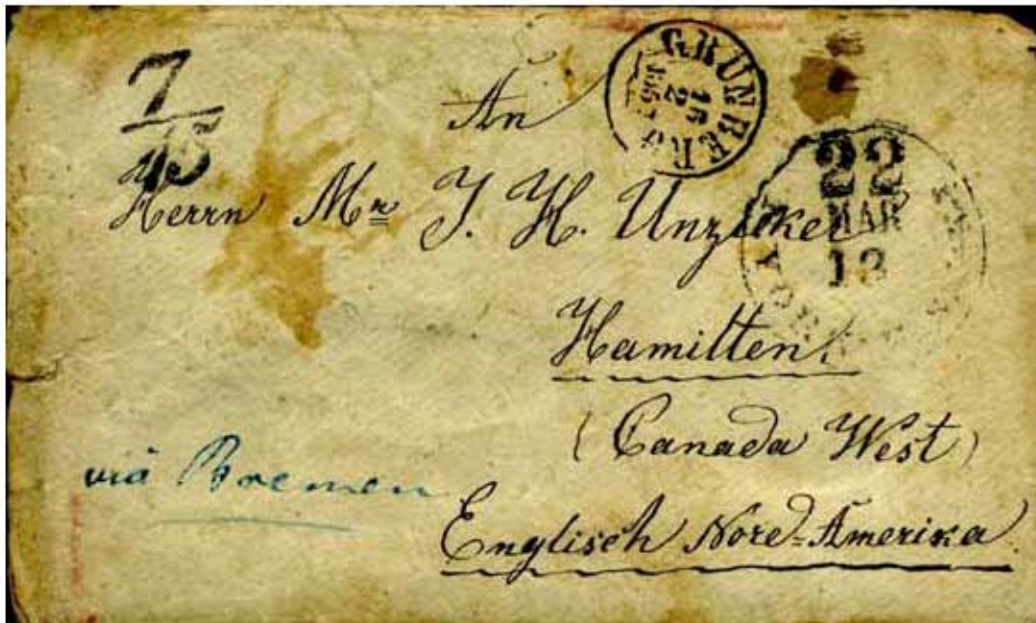 7/45
GRUNBERG
16
2
An
22
MAR
13
Herrn Mr. J. H. Unzicker
Hamilten.
(Canada West)
via Bremen
Englisch Nord-Amerika